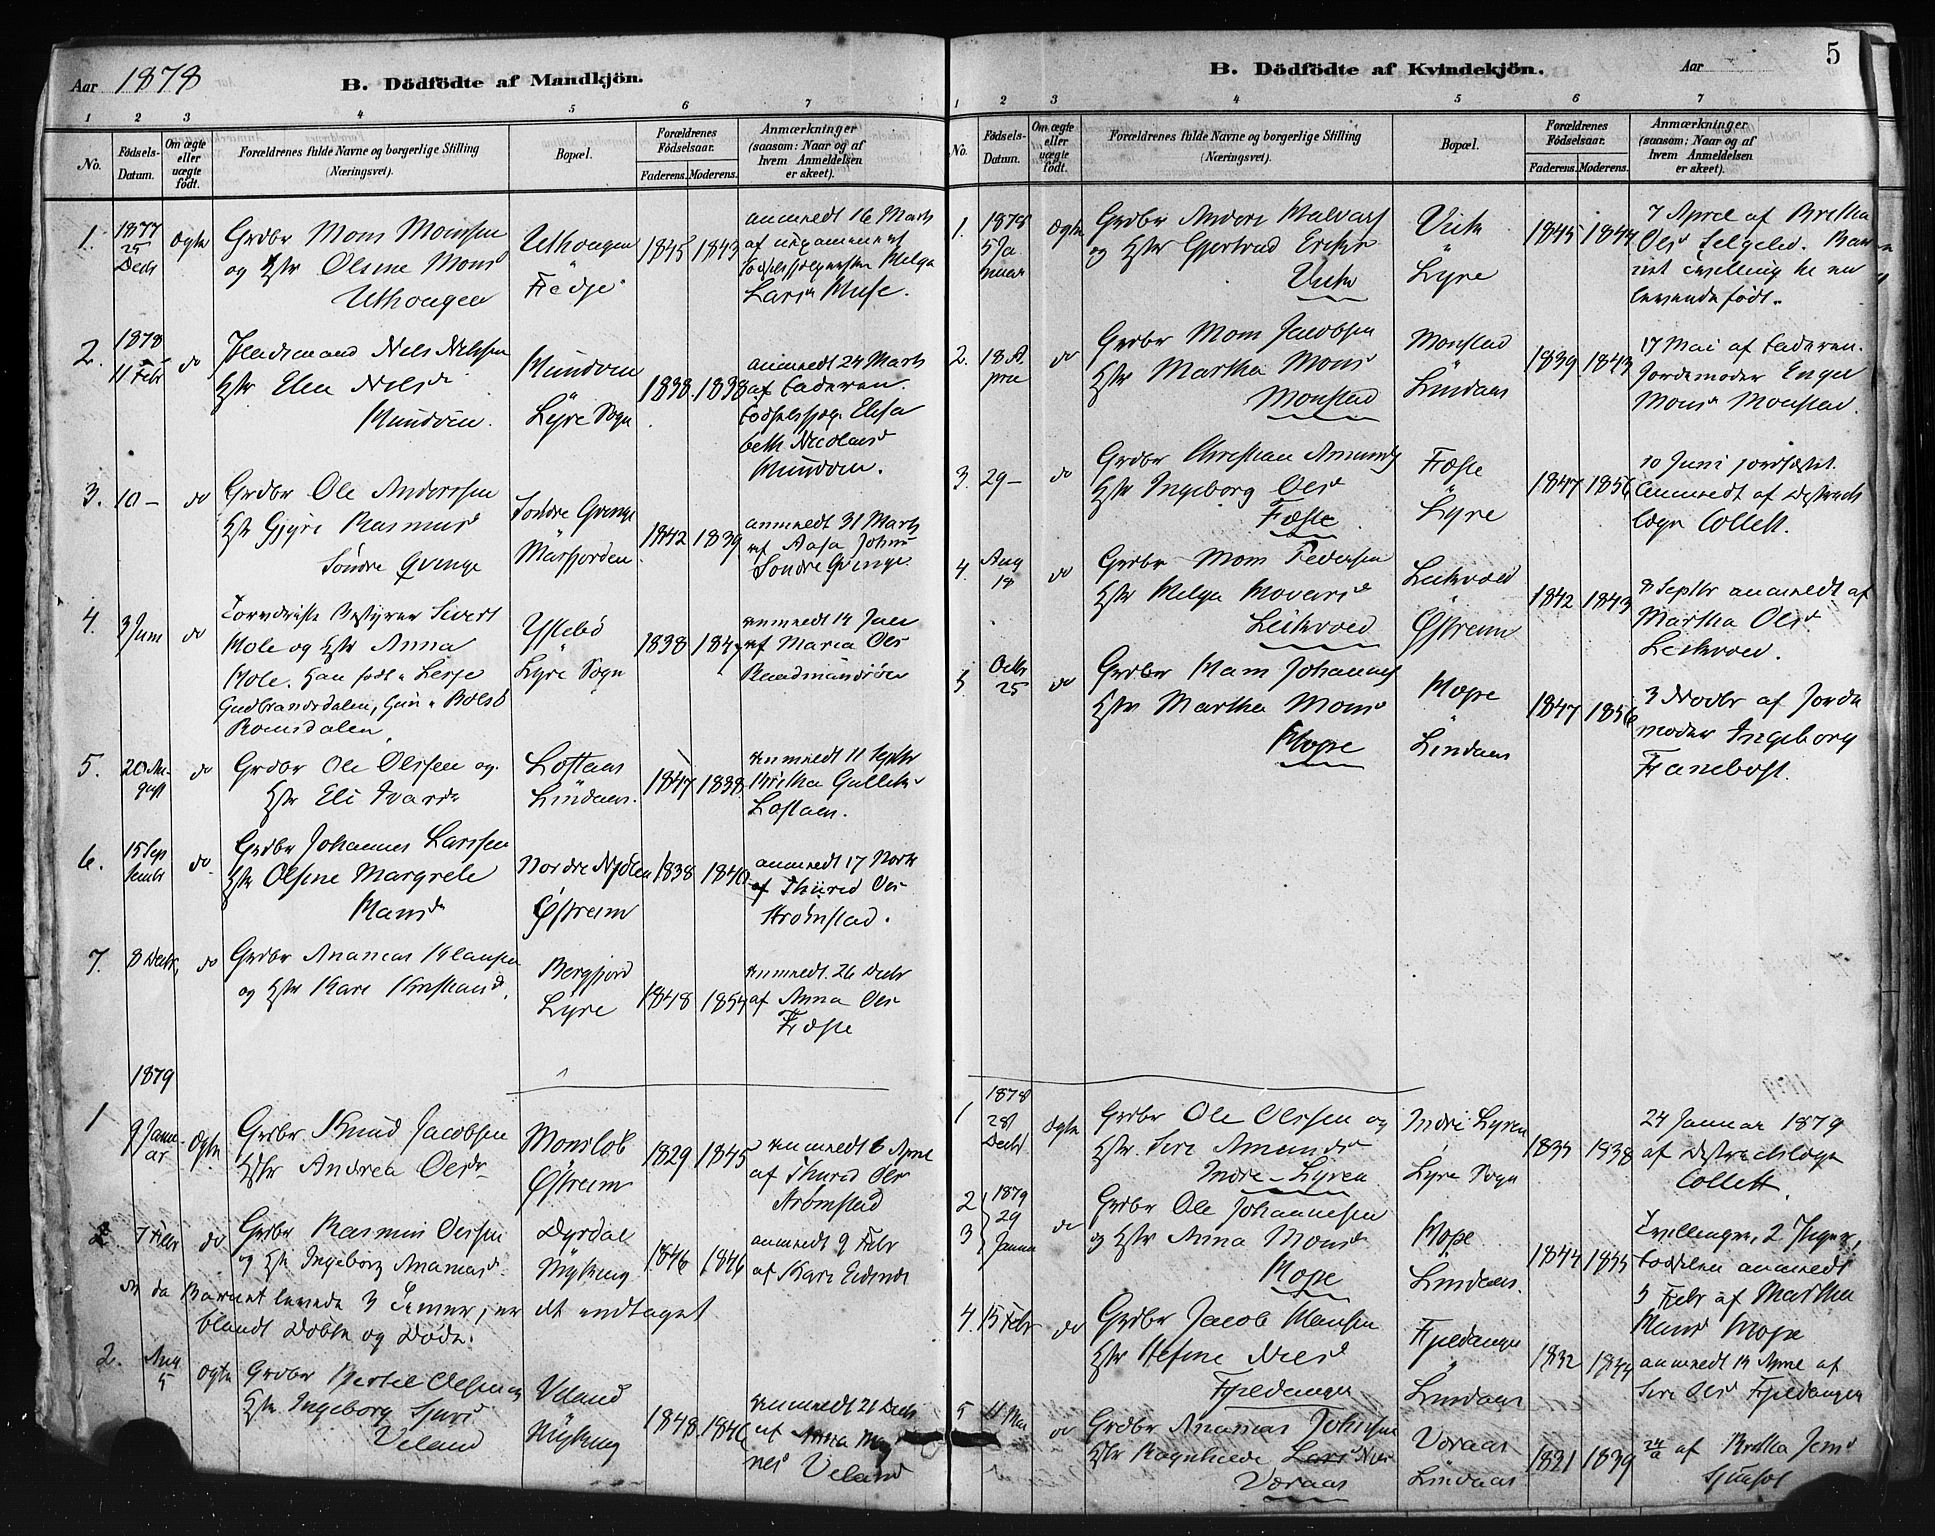 Aar 1878
B. Dödfödte af Mandkjön.
1 2 3 4 5 6 7
No.
Födsels-
Datum.
Om ægte
eller
uægte
födt.
Forældrenes fulde Navne og borgerlige Stilling
(Næringsvei).
Bopæl.
Forældrenes
Födselsaar.
Faderens. Moderens.
Anmærkninger
(saasom: Naar og af
hvem Anmeldelsen
er skeet).
1. 1877 25 Decbr Ægte
Grdbr Mons Monssen
og Hstr Olsine Monsd
Uthougen
Fedje
1845 1843
anmeldt 16 Marts
af
Larsd
2. 1878 11 Febr do
Nils Nilssen
Hstr Elen Nilsd
Mundøen.
Mundøen
Lyre Sogn
1838. 1838
anmeldt 24 Marts
af Faderen.
Elisa
beth Nicolaisd
Mundøen.
3. 10 – do
Grdbr Ole Anderssen
Hstr Gjøri Rasmusd
Søndre Qvinge
Søndre Qvinge
Masfjorden
1842 1839
anmeldt 31 Marts
af Aasa Johns
Søndre Qvinge
4. 2 Juni do
Bestyrer Sivert
Mole og Hstr Anna
Mole. Han født i Lesje
Gudbrandsdalen, hun i Bolsø
Romsdalen.
Ystebø
Lyre Sogn
1838
anmeldt 14 Juli
af Maria Ols
5. 20 Au-
gust do
Grdbr Ole Olssen og
Hstr Eli Ivarsd
Loftaas
Lindaas.
1847 1838
anmeldt 11 Septbr
Britha
Loftaas.
6. 15 Sep
tembr do
Grdbr Johannes Larssen
Hstr Olsine Margrete
Hansd
Nordre
Østreim
1838 1840
anmeldt 17 Novbr
af Thurid Ols
Strømstad.
7. 8 Decbr, do
Grdbr Ananias Klaussen
og Hstr Kari
Bergfjord
Lyre
1848 1854
anmeldt. 26 Decbr
af Anna Ols
Fæste
1879
1 9 Janu-
ar Ægte
Grdbr Knud Jacobsen
Hstr Andrea Olsd
Monsløb
Østreim
1829 1845
anmeldt 6 April
af Thurid Ols
Strømstad
7 Febr do
Grdbr Rasmus Olssen
og Hstr Ingeborg Ananiasd
Dyrdal
1846 1846
anmeldt 9 Febr
af Kari
da Barnet levede 3 Timer, er det indtaget
blandt Døbte og Døde.
2. Aug
5 Ægte
Grdbr Bertel Olssen og
Hstr Ingeborg Sjursd
Veland
Veland
1848. 1846
anmeldt 21 Decbr
af Anna Mag
Veland
5
B. Dödfödte af Kvindekjön.
Aar
1 2 3 4 5 6 7
No.
Födsels-
Datum.
Om ægte
eller
uægte
födt.
Forældrenes fulde Navne og borgerlige Stilling
(Næringsvei).
Bopæl.
Forældrenes
Födselsaar.
Faderens. Moderens.
Anmærkninger
(saasom: Naar og af
hvem Anmeldelsen
er skeet).
1. 1878
5 Ja
nuar Ægte
Grdbr Anders
og Hstr Gjertrud
Viik
Viik
"
Lyre
1845 1844
7 April af Britha
Olsd
Tvilling
levende født.
2. 18 A
pril do
Grdbr Mons Jacobsen
Hstr Martha Monsd
Monstad
Monstad
"
Lindaas
1839 1843
17 Mai af Faderen.
Jordemoder Engel
Monsd Monstad.
3. 29 – do
Grdbr Christian
Hstr Ingeborg Olsd
Fæste
Fæste
"
Lyre
1847 1856
10 Juni
Anmeldt af Distrikts
læge Collett.
4. Aug
18 do
Grdbr Mons Pedersen
Hstr Helga
Leikvold
Leikvold
"
Østreim
1842 1843
8 Septbr anmeldt af
Martha Olsd
Leikvold.
5 Octbr
25 do
Grdbr Hans Johannes
Hstr Martha Monsd
Hope
Hope
"
Lindaas
1847 1856
3 Novbr af Jorde
moder Ingeborg
Fanebost.
1 1878
28
Decbr Ægte
Grdbr Ole Olssen og
Hstr. Siri Amundsd
Indre Lyren
Indre Lyren
Lyre Sogn
1838
24 Januar 1879
af Distriktslæge
Collett.
2
3 1879
29
Januar do
Grdbr Ole Johannessen
og Hstr Anna Monsd
Hope
Hope
"
Lindaas.
1844
Tvillinger, 2 Piger,
anmeldt
5 Febr af Martha
Hansd Hope
4 15 Febr do
Grdbr Jacob Hanssen
Hstr Nilsd
Fjeldanger
Fjeldanger
"
Lindaas
1832
anmeldt 14 April af
Siri Olsd Fjeldanger
5 11 Mai do
Grdbr Ananias Johnssen
Hstr Ragnhilde
Voraas
Voraas
Lindaas
1831 1839
af Britha Jensd